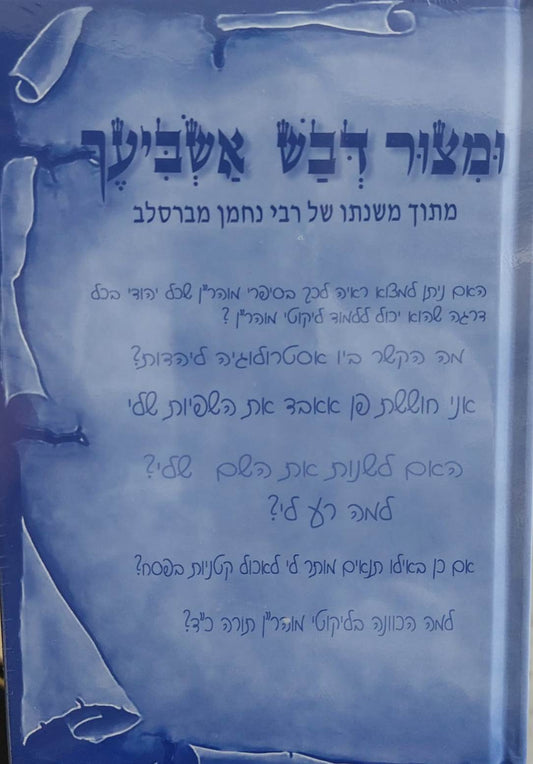 וּמִצּוּר דְּבַשׁ אַשְׂבִּיעֶךָ
מתוך משנתו של רבי נחמן מברסלב
האם ניתן למצוא ראיה לכך בסיפרי מוהר"ן שכל יהודי בכל
דרגה שהוא יכול ללמוד ליקוטי מוהר"ן ?
מה הקשר בין אסטרולוגיה ליהדות?
אני חוששת פן אאבד את השפיות שלי
האם לשנות את השם שלי?
למה רע לי?
אם כן באילו תנאים מותר לי לאכול קטניות בפסח?
למה הכוונה בליקוטי מוהר"ן תורה כ"ד?